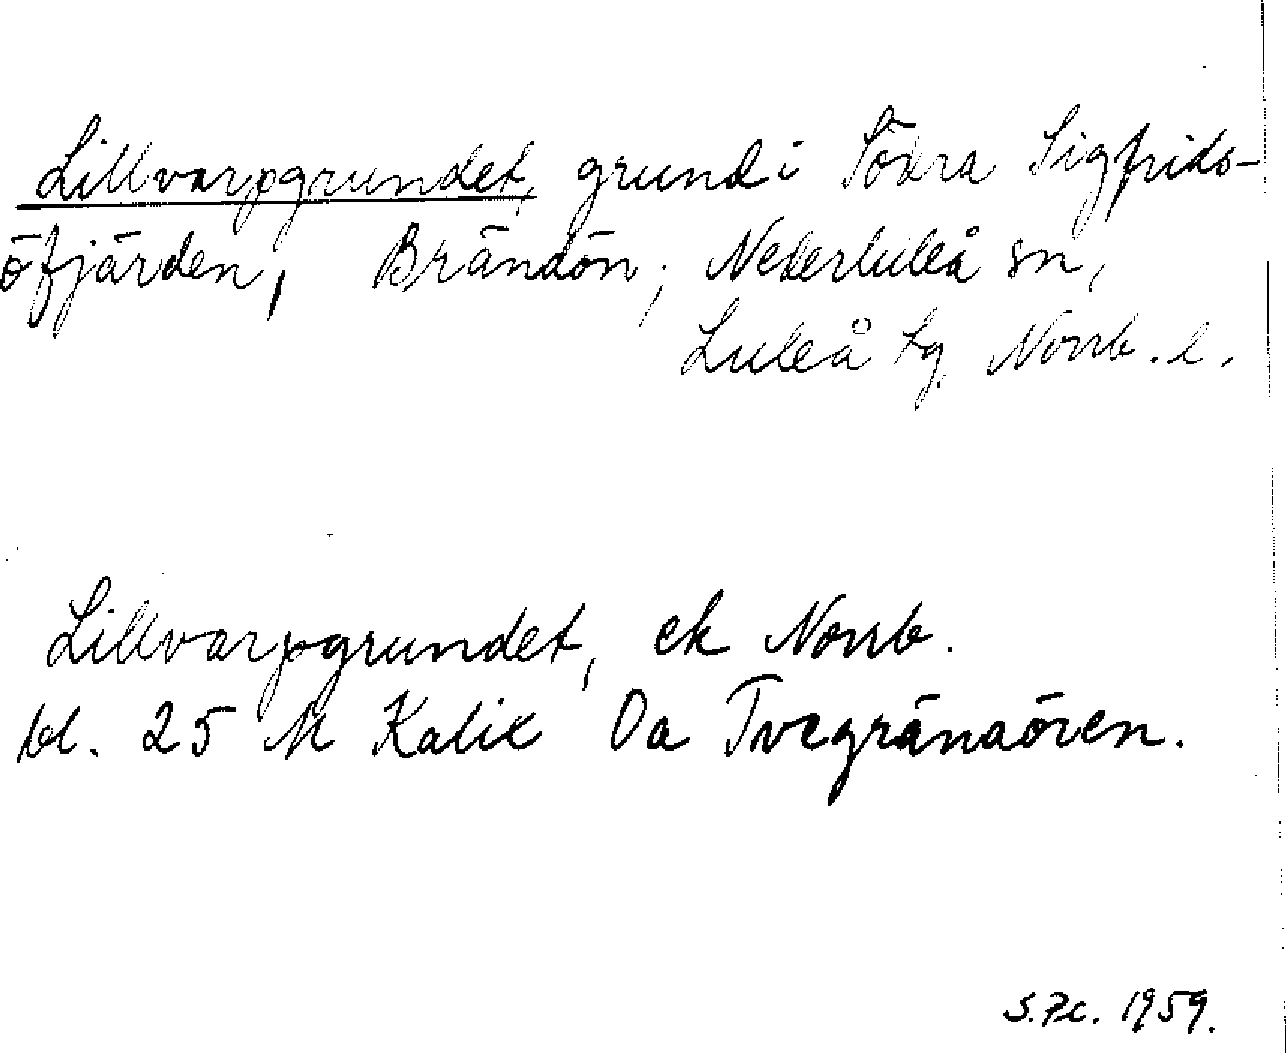 Lillvarpgrundet, grund i Södra Sigfrids-
öfjärden, Brändön, Nederluleå sn,
Luleå tg. Norrb. l.
Lillvarpgrundet, ek Norrb.
bl. 25 N Kalix Oa Tvegränaören.
1959.